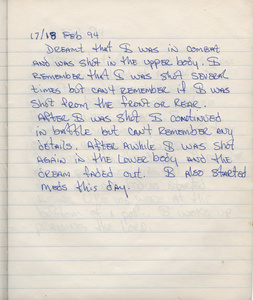 17/18 Feb 94
Dreamt that I was in combat
and was shot in the upper body. I
remember that I was shot several
times but can't remember if I was
shot from the front or rear.
After I was shot I continued
in battle but can't remember any
details. After awhile I was shot
again in the lower body and the
dream faded out. I also started
meds this day.